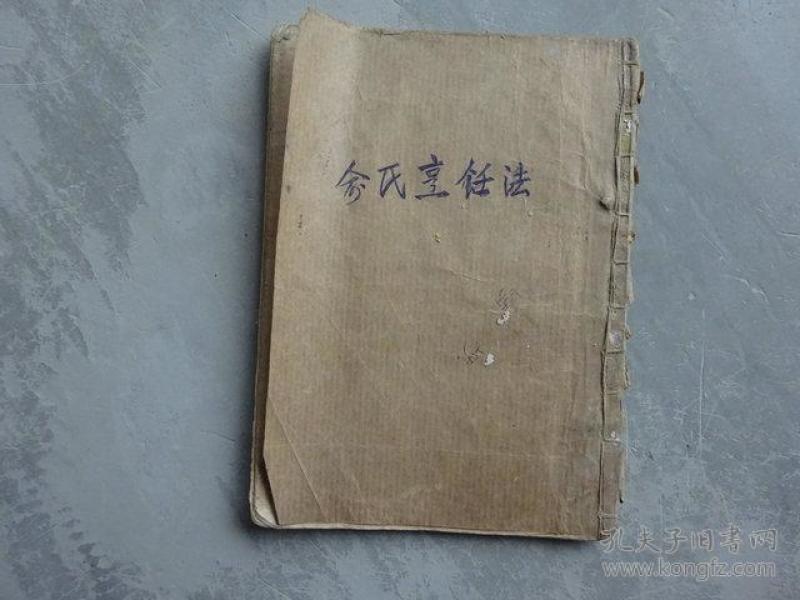 俞氏烹饪法
孔夫子旧书网
www.kongfz.com